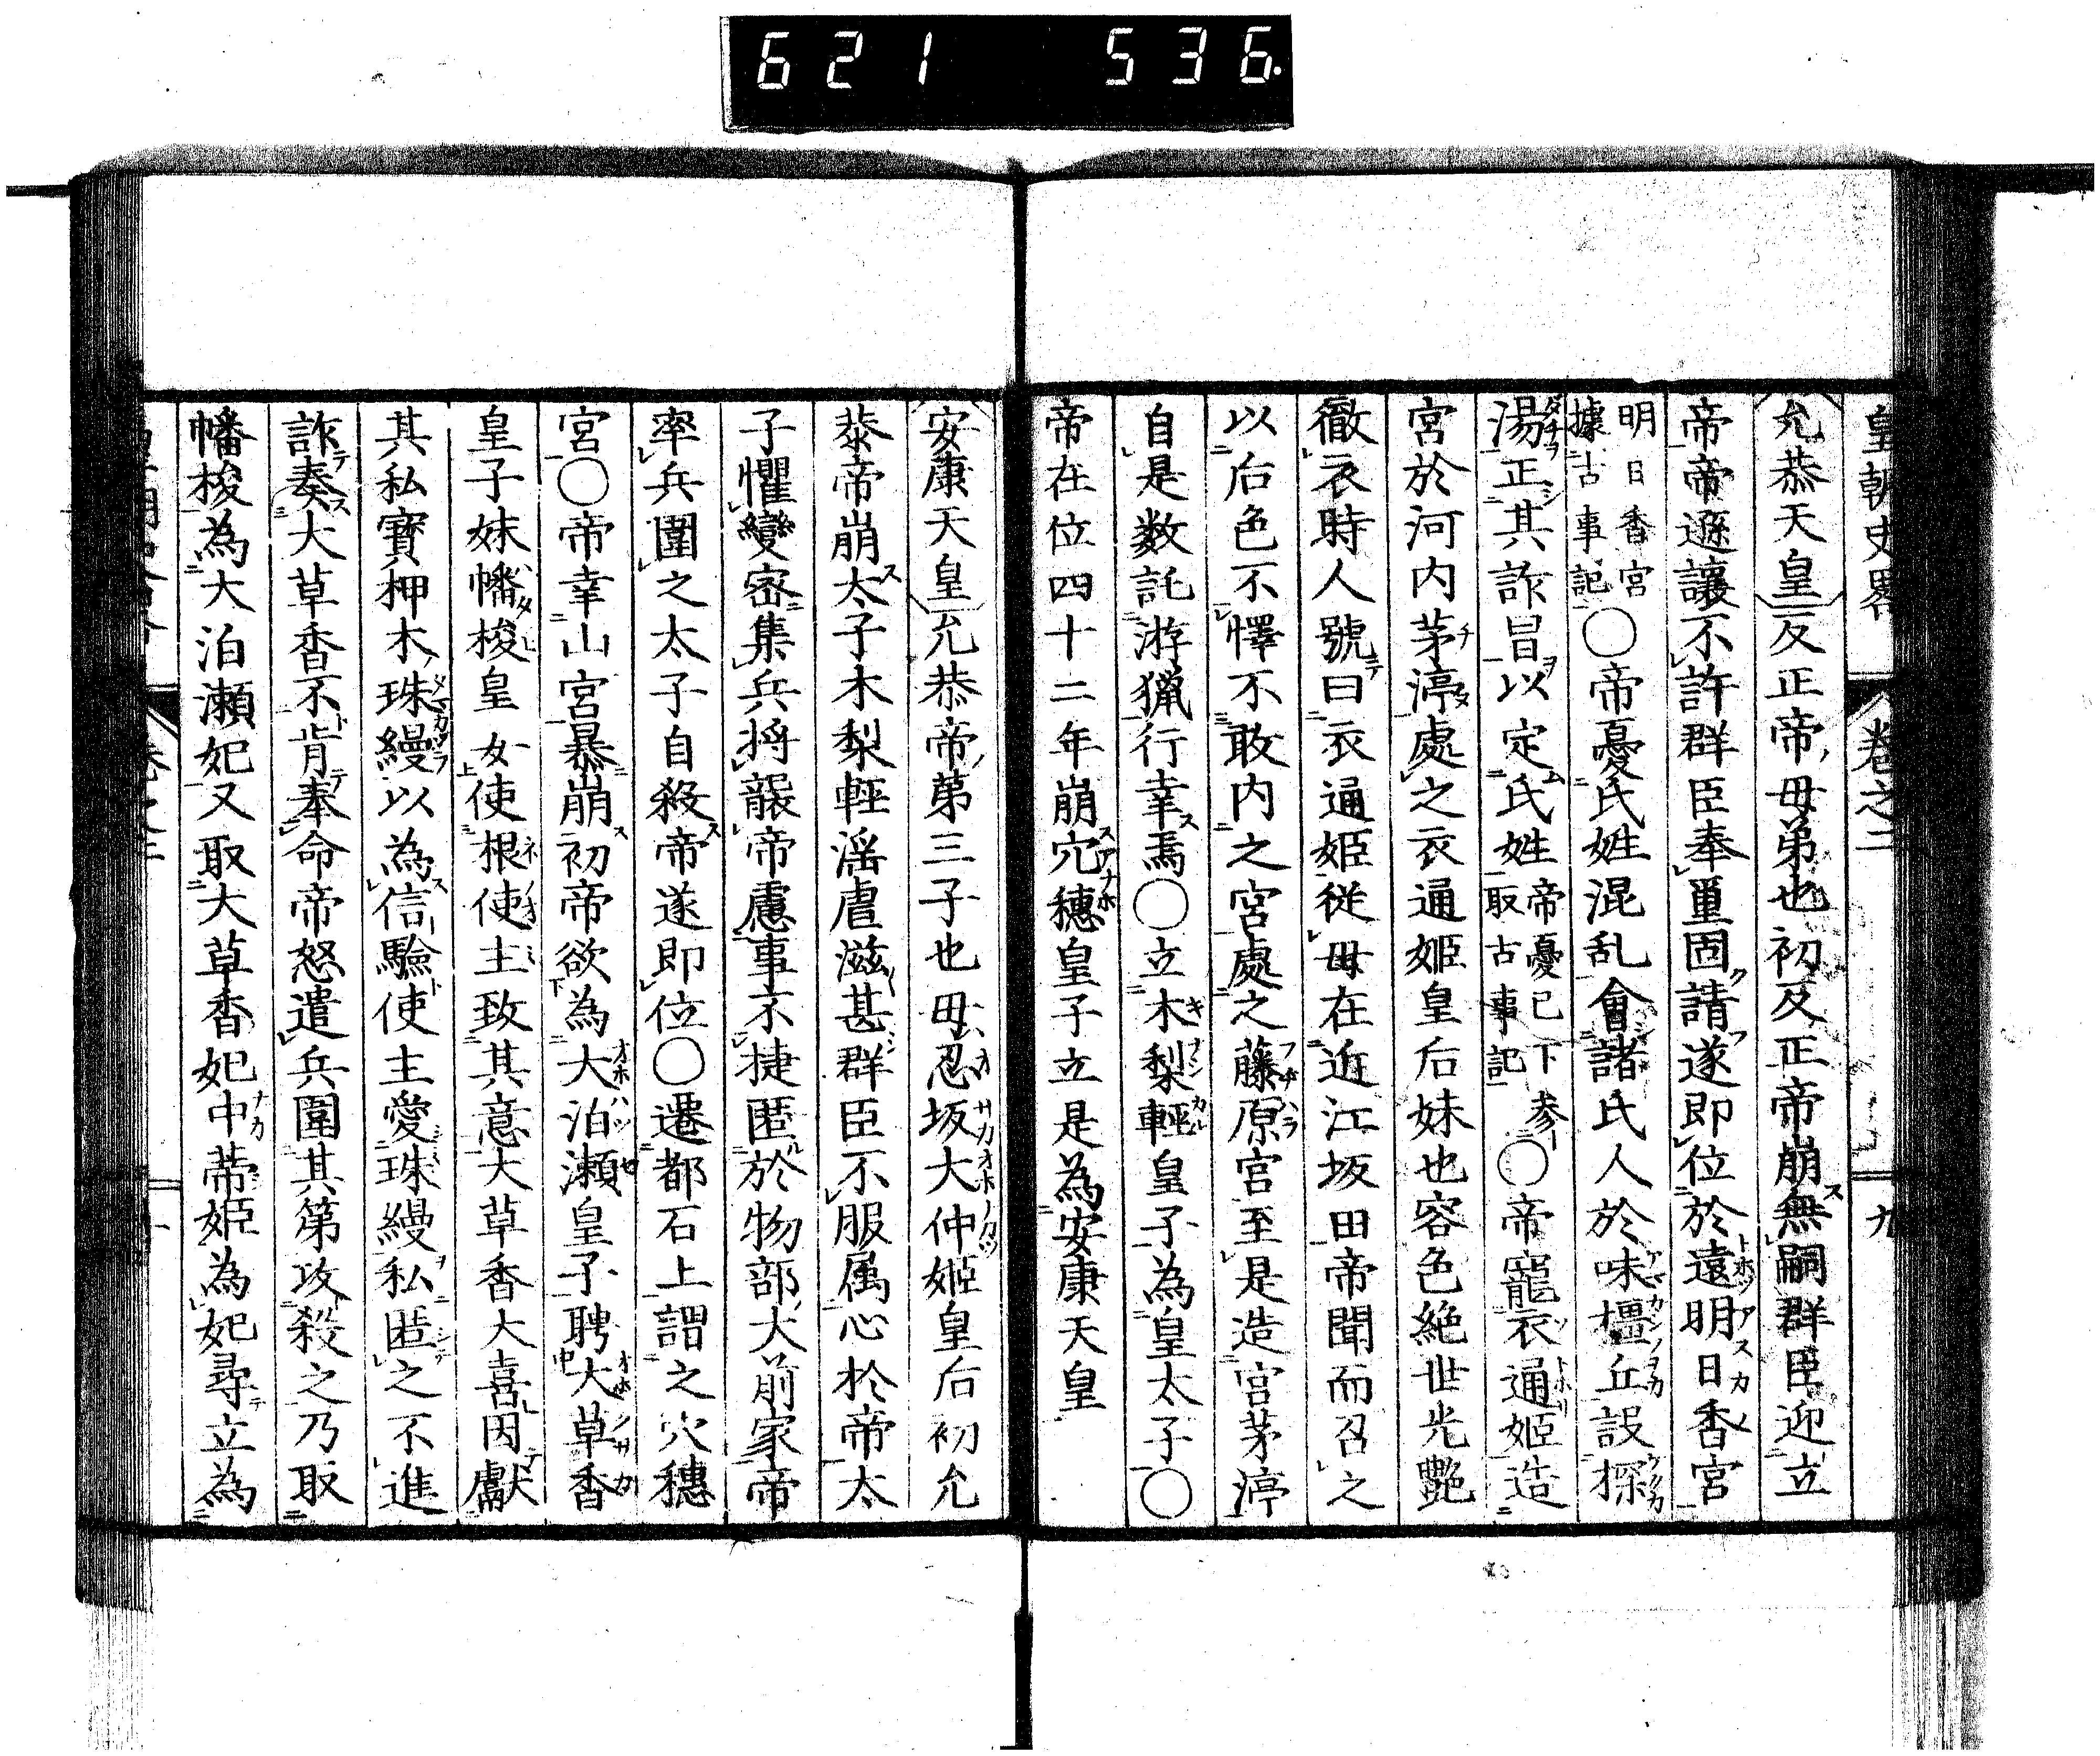 621 536.
皇朝史畧 卷之二 九
允恭天皇反正帝母弟也初反正帝崩無嗣群臣迎立
帝帝遜讓不許群臣奉璽固請遂即位於遠明日香宮
明日香宮據古事記〇帝憂氏姓混乱會諸氏人於味橿丘設探
湯正其詐冒以定氏姓帝憂已下參取古事記〇帝寵衣通姬造
宮於河内茅渟處之衣通姬皇后妹也容色絶世光艷
徹衣時人號曰衣通姬從母在近江坂田帝聞而召之
以后色不懌不敢内之宮處之藤原宮至是造宮茅渟
自是数託游獵行幸焉〇立木梨輕皇子為皇太子〇
帝在位四十二年崩穴穗皇子立是為安康天皇
安康天皇允恭帝第三子也母忍坂大仲姬皇后初允
恭帝崩太子木梨輕淫虐滋甚群臣不服属心於帝太
子懼變密集兵將襲帝慮事不捷匿於物部大前家帝
率兵圍之太子自殺帝遂即位〇遷都石上謂之穴穗
宮〇帝幸山宮暴崩初帝欲為大泊瀬皇子聘大草香
皇子妹幡梭皇女使根使主致其意大草香大喜因獻
其私寶押木珠縵以為信驗使主愛珠縵私匿之不進
詐奏大草香不肯奉命帝怒遣兵圍其第攻殺之乃取
幡梭為大泊瀬妃又取大草香妃中蒂姬為妃尋立為